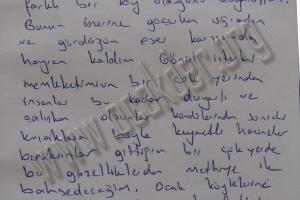 farklı bir köy olduğunu
Bunun üzerine geçerken uğradım
ve gördüğüm eser karşısında
hayran kaldım. Gönül ister
memleketimizin bir çok yerinden
insanlar bu kadar duyarlı ve
çalışkan olsunlar kendilerinden sonraki
kuşaklara böyle kıymetli hazineler
bıraksınlar gittiğim bir çok yerde
bu güzelliklerden methiye ile
bahsedeceğim. Ocak köylülerine